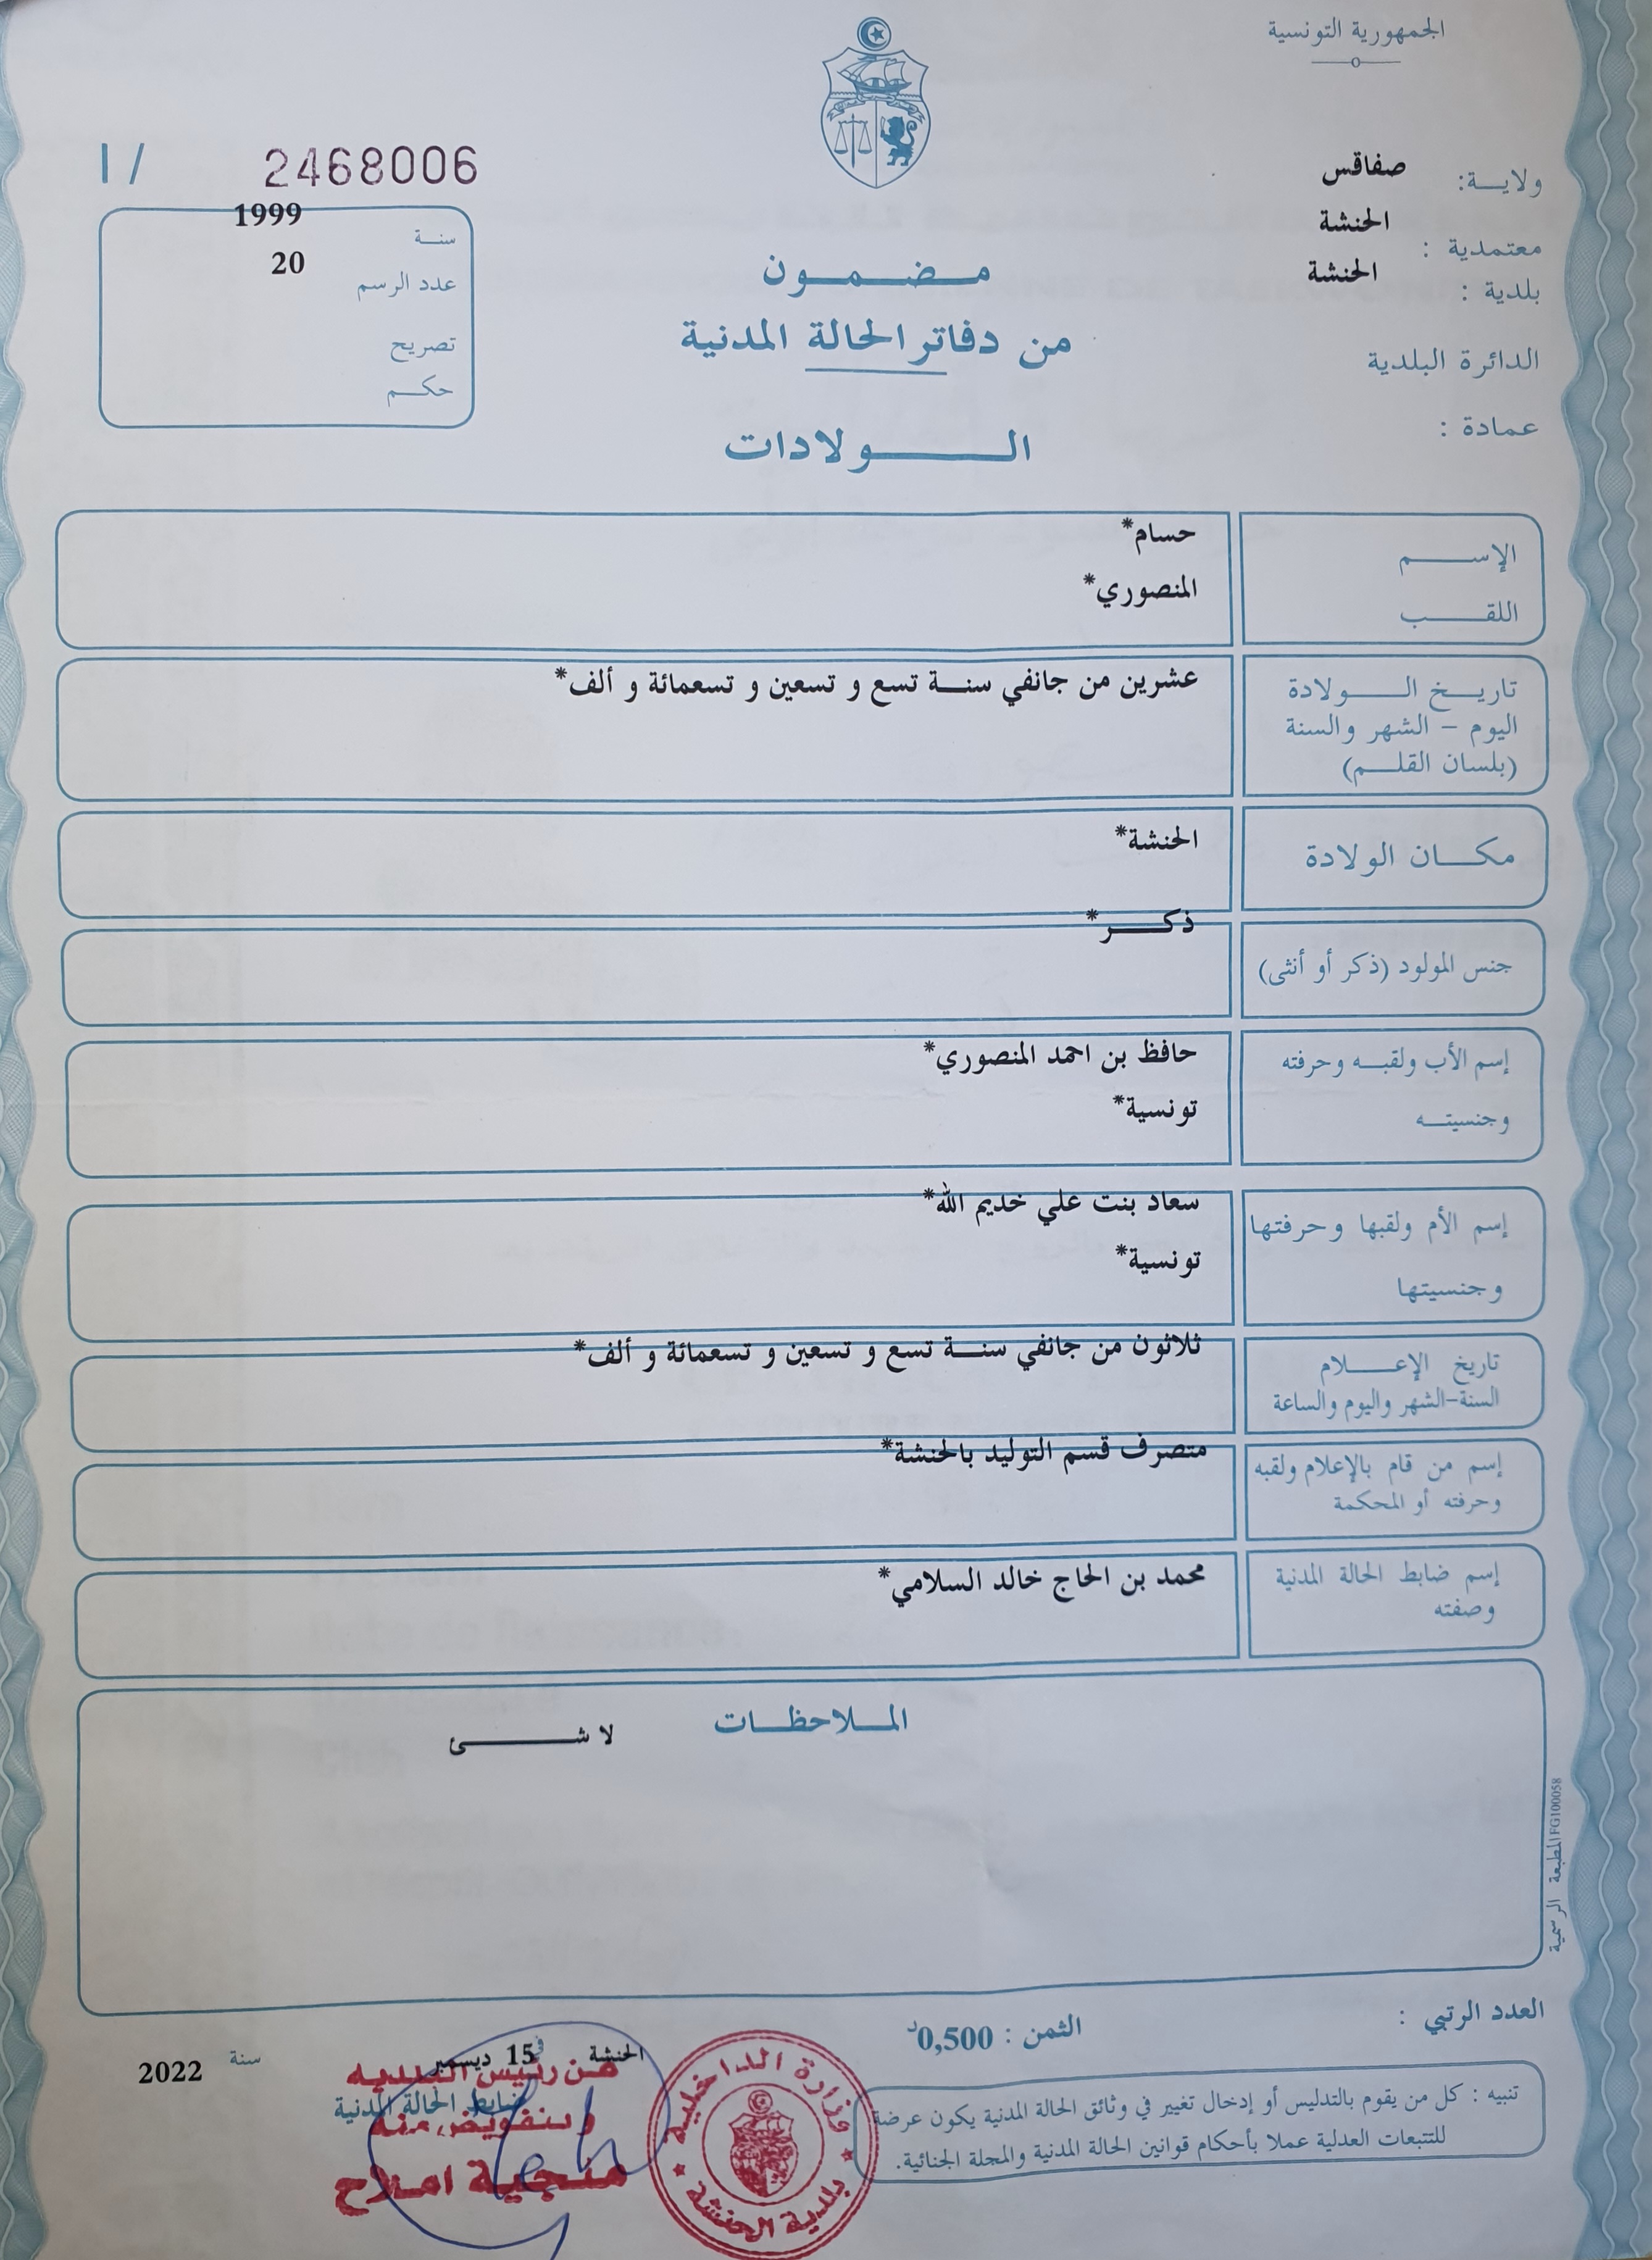 الجمهورية التونسية
ولايـــة: صفاقس
معتمدية : الحنشة
بلدية : الحنشة
الدائرة البلدية
عمادة :
2468006 / I
سنــة 1999
عدد الرسم 20
تصريح
حكــم
مـضـمـون
من دفاتر الحالة المدنية
الـــولادات
الإســـم حسام*
اللقـــب المنصوري*
تاريـــخ الـــولادة عشرين من جانفي سنـــة تسع و تسعين و تسعمائة و ألف*
اليوم – الشهر والسنة
(بلسان القلـــم)
مكـــان الولادة الحنشة*
جنس المولود (ذكر أو أنثى) ذكـــر*
إسم الأب ولقبــه وحرفته حافظ بن احمد المنصوري*
وجنسيتــه تونسية*
إسم الأم ولقبها وحرفتها سعاد بنت علي خديم الله*
وجنسيتها تونسية*
تاريخ الإعـــلام ثلاثون من جانفي سنـــة تسع و تسعين و تسعمائة و ألف*
السنة-الشهر واليوم والساعة
إسم من قام بالإعلام ولقبه متصرف قسم التوليد بالحنشة*
وحرفته أو المحكمة
إسم ضابط الحالة المدنية محمد بن الحاج خالد السلامي*
وصفته
المـــلاحظـــات
لا شـــــئ
المطبعة الرسمية FG100058
العدد الرتبي :
الثمن : 0,500د
الحنشة في 15 ديسمبر سنة 2022
ضابط الحالة المدنية
عن رئيس البلدية
وبتفويض منه
منجية املاح
وزارة الداخلية
بلدية الحنشة
تنبيه : كل من يقوم بالتدليس أو إدخال تغيير في وثائق الحالة المدنية يكون عرضة
للتتبعات العدلية عملا بأحكام قوانين الحالة المدنية والمجلة الجنائية.